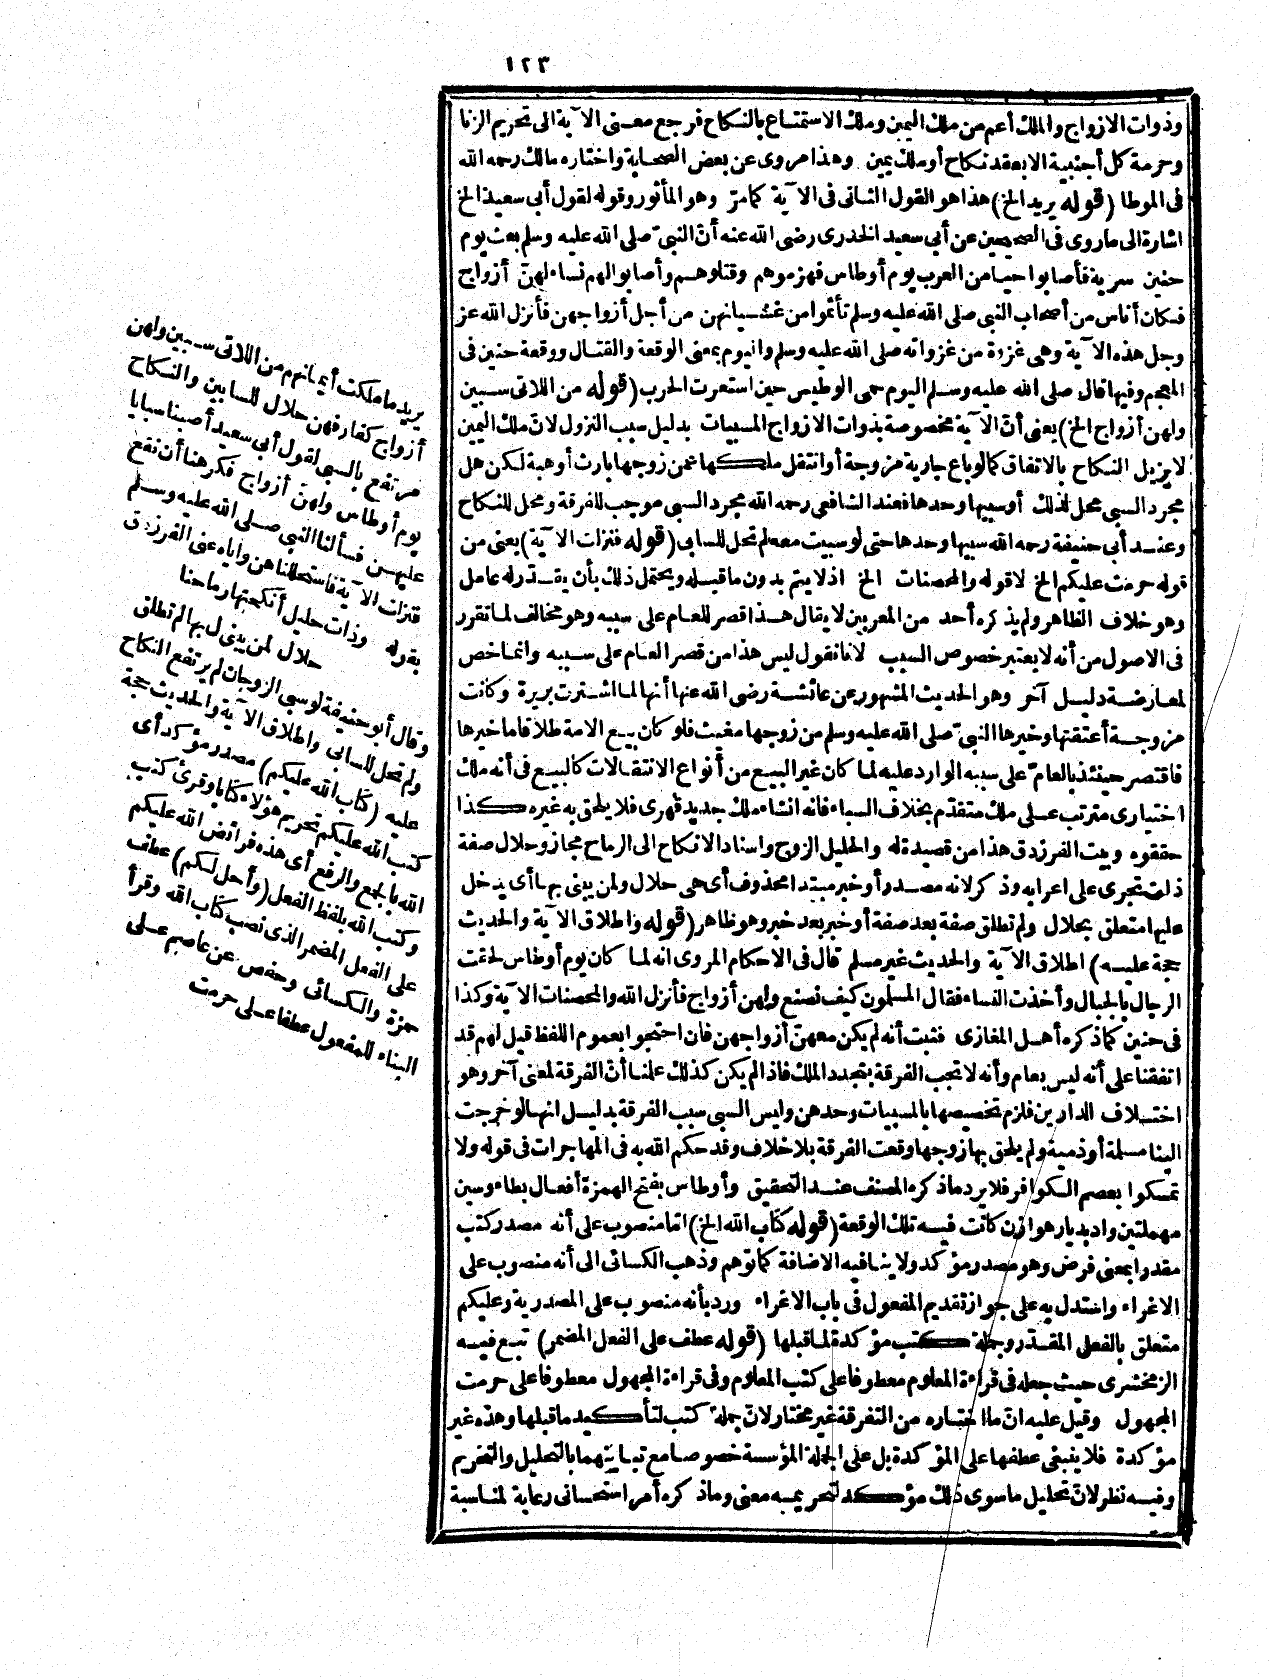 ١٢٣
وذوات الازواج والملك أعم من ملك اليمين وملك الاستمتاع بالنكاح فرجع معنى الآية الى تحريم الزنا
وحرمة كل أجنبية الا بعقد نكاح أو ملك يمين وهذا مروى عن بعض الصحابة واختاره مالك رحمه الله
فى الموطا (قوله يريد الخ) هذا هو القول الثانى فى الآية كما مرّ وهو المأثور وقوله لقول أبى سعيد الخ
اشارة الى ما روى فى الصحيحين عن أبى سعيد الخدرى رضى الله عنه أنّ النبىّ صلى الله عليه وسلم بعث يوم
حنين سرية فأصابوا حيا من العرب يوم أوطاس فهزموهم وقتلوهم وأصابوا لهم نساء لهنّ أزواج
فكان أناس من أصحاب النبى صلى الله عليه وسلم تأثموا من غشيانهن من أجل أزواجهن فأنزل الله عز
وجل هذه الآية وهى غزوة من غزواته صلى الله عليه وسلم واليوم بمعنى الوقعة والقتال ووقعة حنين فى
المعجم وفيها قال صلى الله عليه وسلم اليوم حمى الوطيس حين استعرت الحرب (قوله من اللاتى سبين
ولهن أزواج الخ) يعنى أنّ الآية مخصوصة بذوات الازواج المسبيات بدليل سبب النزول لانّ ملك اليمين
لا يزيل النكاح بالاتفاق كما لو باع جارية مزوجة أو انتقل ملكها عمن زوجها بارث أو هبة لكن هل
مجرد السبى محل لذلك أو سبيها وحدها فعند الشافعى رحمه الله مجرد السبى موجب للفرقة ومحل للنكاح
وعند أبى حنيفة رحمه الله سبيها وحدها حتى لو سبيت معه لم تحل للسابى (قوله فنزلت الآية) يعنى من
قوله حرمت عليكم الخ لا قوله والمحصنات الخ اذ لا يتم بدون ما قبله ويحتمل ذلك بأن يقدّر له عامل
وهو خلاف الظاهر ولم يذكره أحد من المعربين لا يقال هذا قصر للعام على سببه وهو مخالف لما تقرر
فى الاصول من أنه لا يعتبر خصوص السبب لانا نقول ليس هذا من قصر العام على سببه وانما خص
لمعارضة دليل آخر وهو الحديث المشهور عن عائشة رضى الله عنها أنها لما اشترت بريرة وكانت
مزوجة أعتقتها وخيرها النبىّ صلى الله عليه وسلم من زوجها مغيث فلو كان بيع الامة طلاقا ما خيرها
فاقتصر حينئذ بالعامّ على سببه الوارد عليه لما كان غير البيع من أنواع الانتقالات كالبيع فى أنه ملك
اختيارى مترتب على ملك متقدّم بخلاف السباء فانه انشاء ملك جديد قهرى فلا يلحق به غيره كذا
حققوه وبيت الفرزدق هذا من قصيدة له والحليل الزوج واسناد الانكاح الى الرماح مجاز وحلال صفة
ذات تجرى على اعرابه وذكر لانه مصدر أو خبر مبتدا محذوف أى هى حلال ولمن يبنى بها أى يدخل
عليها متعلق بحلال ولم تطلق صفة بعد صفة أو خبر بعد خبر وهو ظاهر (قوله واطلاق الآية والحديث
حجة عليه) اطلاق الآية والحديث غير مسلم قال فى الاحكام المروى انه لما كان يوم أوطاس لحقت
الرجال بالجبال وأخذت النساء فقال المسلمون كيف نصنع ولهن أزواج فأنزل الله والمحصنات الآية وكذا
فى حنين كما ذكره أهل المغازى فثبت أنه لم يكن معهنّ أزواجهن فان احتجوا بعموم اللفظ قيل لهم قد
اتفقنا على أنه ليس بعام وأنه لا تجب الفرقة بتجدد الملك فاذا لم يكن كذلك علمنا أنّ الفرقة لمعنى آخر وهو
اختلاف الدارين فلزم تخصيصها بالمسبيات وحدهن وليس السبى سبب الفرقة بدليل انها لو خرجت
الينا مسلمة أو ذمية ولم يلحق بها زوجها وقعت الفرقة بلا خلاف وقد حكم الله به فى المهاجرات فى قوله ولا
تمسكوا بعصم الكوافر فلا يرد ما ذكره المصنف عند التحقيق وأوطاس بفتح الهمزة أفعال بطاء وسين
مهملتين واد بديار هوازن كانت فيه تلك الوقعة (قوله كتاب الله الخ) امّا منصوب على أنه مصدر كتب
مقدرا بمعنى فرض وهو مصدر مؤكد ولا ينافيه الاضافة كما توهم وذهب الكسائى الى أنه منصوب على
الاغراء واستدل به على جواز تقديم المفعول فى باب الاغراء ورد بأنه منصوب على المصدرية وعليكم
متعلق بالفعل المقدّر وجملة كتب مؤكدة لما قبلها (قوله عطف على الفعل المضمر) تبع فيه
الزمخشرى حيث جعله فى قراءة المعلوم معطوفا على كتب المعلوم وفى قراءة المجهول معطوفا على حرمت
المجهول وقيل عليه انّ ما اختاره من التفرقة غير مختار لانّ جملة كتب لتأكيد ما قبلها وهذه غير
مؤكدة فلا ينبغى عطفها على المؤكدة بل على الجملة المؤسسة خصوصا مع تباينهما بالتحليل والتحريم
وفيه نظر لانّ تحليل ما سوى ذلك مؤكد لتحريمه معنى وما ذكره أمر استحسانى رعاية لمناسبة
يريد ما ملكت أيمانهم من اللاتى سبين ولهن
أزواج كفار فهن حلال للسابين والنكاح
مرتفع بالسبى لقول أبى سعيد أصبنا سبايا
يوم أوطاس ولهنّ أزواج فكرهنا أن نقع
عليهن فسألنا النبى صلى الله عليه وسلم
فنزلت الآية فاستحللناهن واياه عنى الفرزدق
بقوله وذات حليل أنكحتها رماحنا
حلال لمن يبنى بها لم تطلق
وقال أبو حنيفة لو سبى الزوجان لم يرتفع النكاح
ولم تحل للسابى واطلاق الآية والحديث حجة
عليه (كتاب الله عليكم) مصدر مؤكد أى
كتب الله عليكم تحريم هؤلاء كتابا وقرئ كتب
الله بالجمع والرفع أى هذه فرائض الله عليكم
وكتب الله بلفظ الفعل (وأحل لكم) عطف
على الفعل المضمر الذى نصب كتاب الله وقرأ
حمزة والكسائى وحفص عن عاصم على
البناء للمفعول عطفا على حرمت